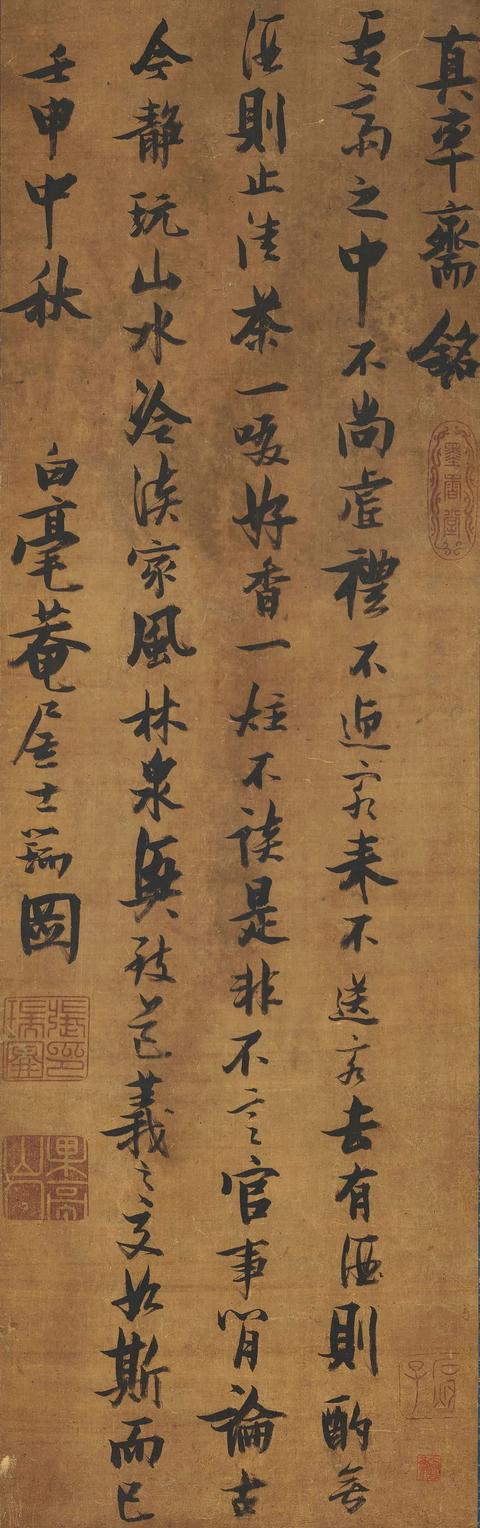 真率齋銘
吾齋之中不尚虛禮不迎客來不送客去有酒則酌無
酒則止清茶一啜好香一炷不談是非不言官事閒論古
今靜玩山水冷淡家風林泉興致道義之交如斯而已
壬申中秋
白毫菴居士瑞圖
張瑞圖印
果亭山人